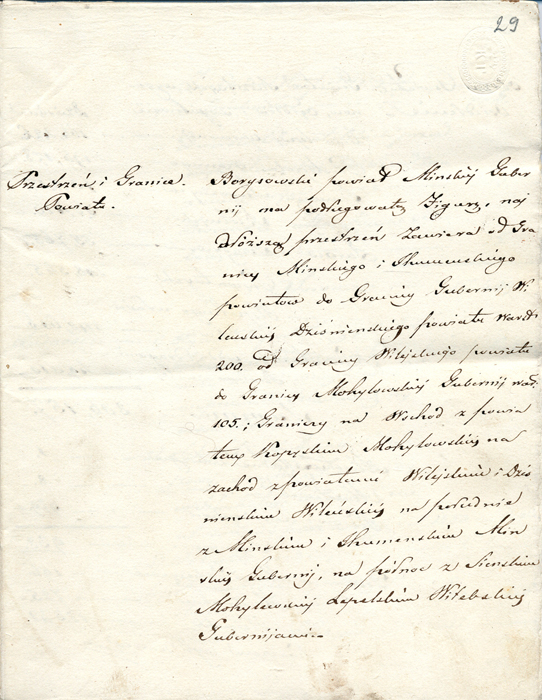 29
Przestrzeń i Granica
Powiatu.
Borysowski powiat Minskiéj Guber
nij ma podługowatą figurę, naj
dłóższą przestrzeń zawiera od Gra
nicy Minskiego i Ihumenskiego
powiatow do Granicy Gubernij Wi
lenskiéj Dzisnienskiego powiatu warst
200. od Granicy Wilejskiego powiatu
do Granicy Mohylowskiéj Gubernij
105.; Graniczy na Wschód z powia
tem Kopyskim Mohylowskiéj na
zachód z powiatami Wilejskim i Dziś
nienskim Wileńskiéj na południe
z Minskim i Ihumenskim Min
skiéj Gubernij, na północ z Sienskim
Mohylewskiéj Lepelskim Witebskiéj
Gubernijami.